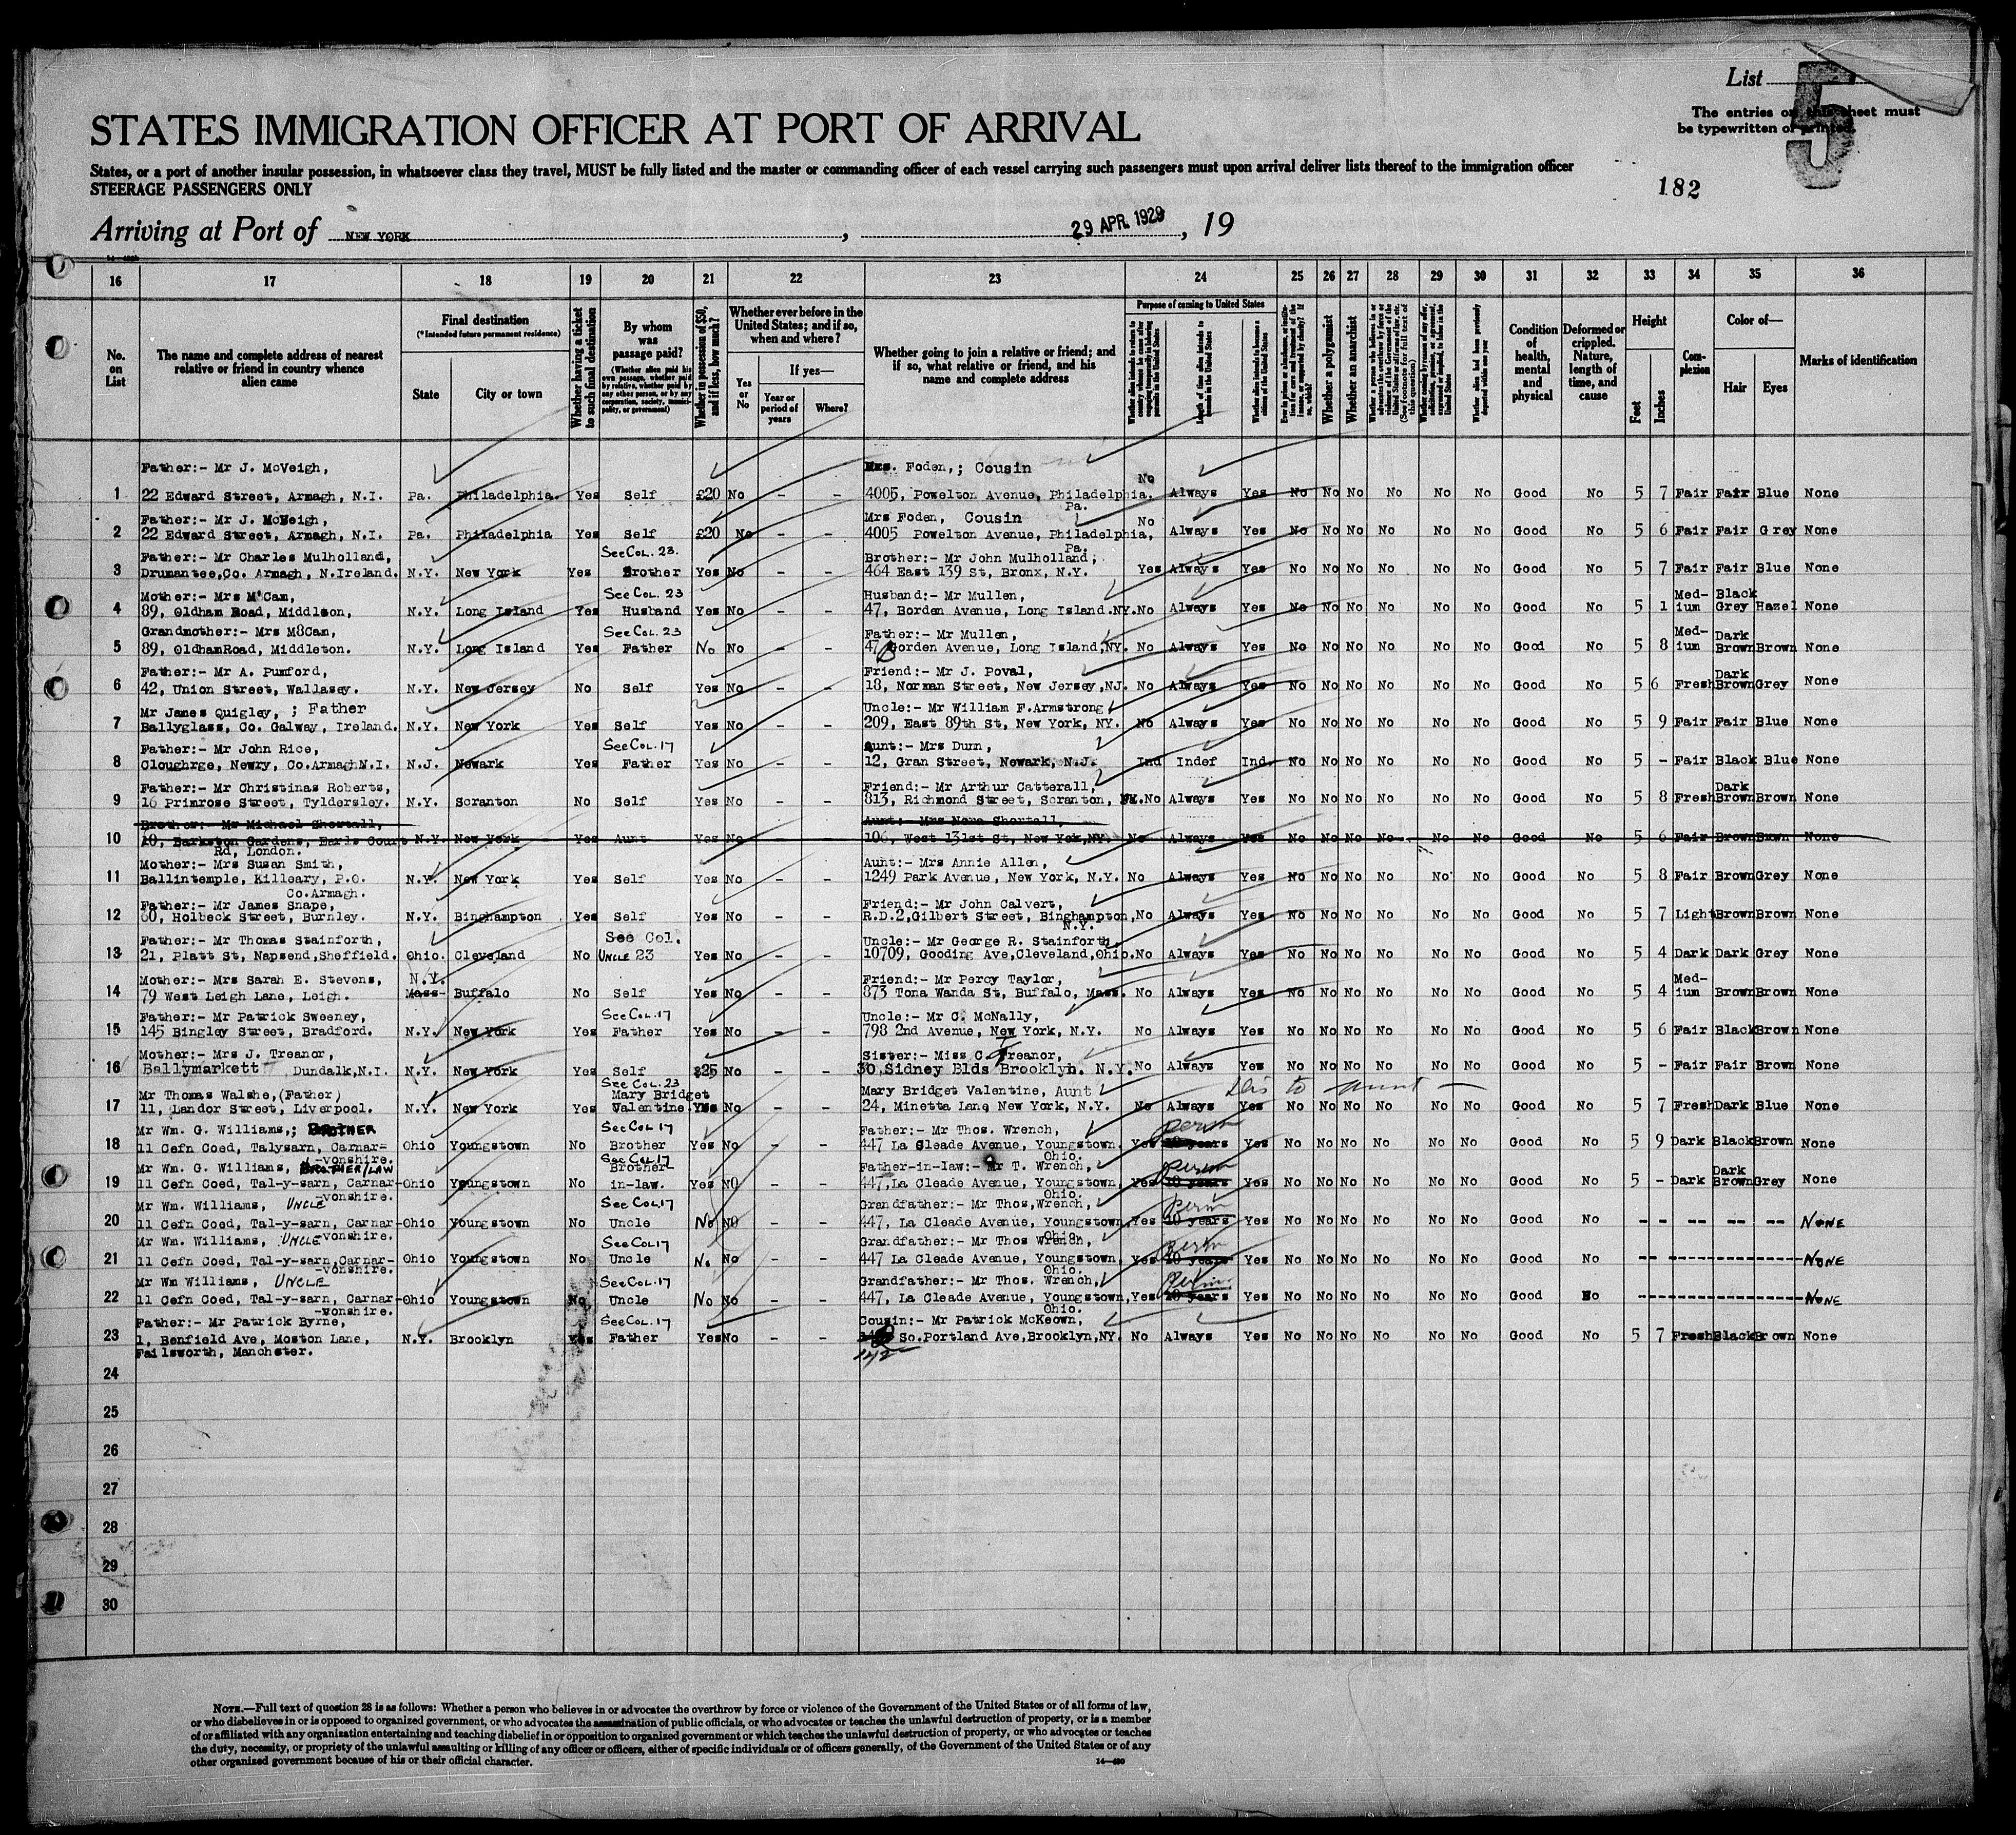 List 5
The entries on this sheet must
be typewritten or printed.
STATES IMMIGRATION OFFICER AT PORT OF ARRIVAL
States, or a port of another insular possession, in whatsoever class they travel, MUST be fully listed and the master or commanding officer of each vessel carrying such passengers must upon arrival deliver lists thereof to the immigration officer
STEERAGE PASSENGERS ONLY
182
Arriving at Port of NEW YORK , 29 APR. 1929 , 19
16 17 18 19 20 21 22 23 24 25 26 27 28 29 30 31 32 33 34 35 36
No. on List
The name and complete address of nearest relative or friend in country whence alien came
Final destination
(*Intended future permanent residence)
State
City or town
Whether having a ticket to such final destination
By whom was passage paid?
(Whether alien paid his own passage, whether paid by relative, whether paid by any other person, or by any corporation, society, municipality, or government)
Whether in possession of $50, and if less, how much?
Whether ever before in the United States; and if so, when and where?
Yes or No
If yes—
Year or period of years
Where?
Whether going to join a relative or friend; and if so, what relative or friend, and his name and complete address
Purpose of coming to United States
Length of time alien intends to remain in the United States
Whether alien intends to become a citizen of the United States
Whether a polygamist
Whether an anarchist
Condition of health, mental and physical
Deformed or crippled. Nature, length of time, and cause
Height
Feet
Inches
Complexion
Color of—
Hair
Eyes
Marks of identification
Father:- Mr J. McVeigh, Mrs. Foden,; Cousin No
1 22 Edward Street, Armagh, N.I. Pa. Philadelphia. Yes Self £20 No - - 4005, Powelton Avenue, Philadelphia. Always Yes No No No No No No Good No 5 7 Fair Fair Blue None
Pa.
Father:- Mr J. McVeigh, Mrs Foden, Cousin No
2 22 Edward Street, Armagh, N.I. Pa. Philadelphia Yes Self £20 No - - 4005 Powelton Avenue, Philadelphia, Always Yes No No No No No No Good No 5 6 Fair Fair Grey None
Pa.
Father:- Mr Charles Mulholland, See Col. 23. Brother:- Mr John Mulholland,
3 Drumantee,Co. Armagh, N.Ireland. N.Y. New York Yes Brother Yes No - - 464 East 139 St, Bronx, N.Y. Yes Always Yes No No No No No No Good No 5 7 Fair Fair Blue None
Mother:- Mrs McCam, See Col. 23 Husband:- Mr Mullen, Med- Black
4 89, Oldham Road, Middleton, N.Y. Long Island Yes Husband Yes No - - 47, Borden Avenue, Long Island.NY. No Always Yes No No No No No No Good No 5 1 ium Grey Hazel None
Grandmother:- Mrs M8Cam, See Col. 23 Father:- Mr Mullen, Med- Dark
5 89, OldhamRoad, Middleton. N.Y. Long Island Yes Father No No - - 47 Borden Avenue, Long Island,NY. No Always Yes No No No No No No Good No 5 8 ium Brown Brown None
Father:- Mr A. Pumford, Friend:- Mr J. Poval, Dark
6 42, Union Street, Wallasey. N.Y. New Jersey No Self Yes No - - 18, Norman Street, New Jersey,NJ. No Always Yes No No No No No No Good No 5 6 Fresh Brown Grey None
Mr James Quigley, ; Father Uncle:- Mr William F.Armstrong
7 Ballyglass, Co. Galway, Ireland. N.Y. New York Yes Self Yes No - - 209, East 89th St, New York, NY. No Always Yes No No No No No No Good No 5 9 Fair Fair Blue None
Father:- Mr John Rice, See Col. 17 Aunt:- Mrs Dunn,
8 Cloughrge, Newry, Co.Armagh N.I. N.J. Newark Yes Father Yes No - - 12, Gran Street, Newark, N.J. Ind Indef Ind. No No No No No No Good No 5 - Fair Black Blue None
Father:- Mr Christinas Roberts, Friend:- Mr Arthur Catterall, Dark
9 16 Primrose Street, Tyldersley. N.Y. Scranton No Self Yes No - - 815, Richmond Street, Scranton, No Always Yes No No No No No No Good No 5 8 Fresh Brown Brown None
Brother:- Mr Michael Shortall, Aunt:- Mrs Nora Shortall,
10 10, Barkston Gardens, Earls Court N.Y. New York Yes Aunt Yes No 106, West 131st St, New York,NY. No Always Yes No No No No No No Good No 5 6 Fair Brown Brown None
Rd, London.
Mother:- Mrs Susan Smith, Aunt:- Mrs Annie Allen,
11 Ballintemple, Killeary, P.O. N.Y. New York Yes Self Yes No - - 1249 Park Avenue, New York, N.Y. No Always Yes No No No No No No Good No 5 8 Fair Brown Grey None
Co.Armagh.
Father:- Mr James Snape, Friend:- Mr John Calvert,
12 60, Holbeck Street, Burnley. N.Y. Binghampton Yes Self Yes No - - R.D.2,Gilbert Street, Binghampton, No Always Yes No No No No No No Good No 5 7 Light Brown Brown None
N.Y.
Father:- Mr Thomas Stainforth, See Col. Uncle:- Mr George R. Stainforth
13 21, Platt St, Napsend,Sheffield. Ohio. Cleveland No Uncle 23 Yes No - - 10709, Gooding Ave,Cleveland,Ohio. No Always Yes No No No No No No Good No 5 4 Dark Dark Grey None
Mother:- Mrs Sarah E. Stevens, N.Y. Friend:- Mr Percy Taylor, Med-
14 79 West Leigh Lane, Leigh. Mass- Buffalo No Self Yes No - - 873 Tona Wanda St, Buffalo, Mass. No Always Yes No No No No No No Good No 5 4 ium Brown Brown None
Father:- Mr Patrick Sweeney, See Col. 17 Uncle:- Mr C. McNally,
15 145 Bingley Street, Bradford. N.Y. New York Yes Father Yes No - - 798 2nd Avenue, New York, N.Y. No Always Yes No No No No No No Good No 5 6 Fair Black Brown None
Mother:- Mrs J. Treanor, Sister:- Miss C. Treanor,
16 Ballymarkett Dundalk,N.I. N.Y. New York Yes Self £25 No - - 30 Sidney Elds Brooklyn. N.Y. No Always Yes No No No No No No Good No 5 - Fair Fair Brown None
See Col. 23
Mr Thomas Walshe,(Father) Mary Bridget Mary Bridget Valentine, Aunt Dis to aunt
17 11, Landor Street, Liverpool. N.Y. New York Yes Valentine Yes No - - 24, Minetta Lane New York, N.Y. No Always Yes No No No No No No Good No 5 7 Fresh Dark Blue None
Mr Wm. G. Williams,; BROTHER See Col 17 Father:- Mr Thos. Wrench, perm
18 11 Cefn Coed, Talysarn, Carnar= Ohio Youngstown No Brother Yes No - - 447 La Cleade Avenue, Youngstown. Yes 10 years Yes No No No No No No Good No 5 9 Dark Black Brown None
-vonshire. Ohio.
Mr Wm. G. Williams, BROTHER/LAW See Col 17 Brother Father-in-law:- Mr T. Wrench, perm Dark
19 11 Cefn Coed, Tal-y-sarn, Carnar- Ohio Youngstown No in-law. Yes No - - 447,La Cleade Avenue, Youngstown. Yes 10 years Yes No No No No No No Good No 5 - Dark Brown Grey None
-vonshire. Ohio.
Mr Wm. Williams, UNCLE See Col 17 Grandfather:- Mr Thos,Wrench, perm
20 11 Cefn Coed, Tal-y-sarn, Carnar- Ohio Youngstown No Uncle No No - - 447, La Cleade Avenue, Youngstown, Yes 10 years Yes No No No No No No Good No - - -- -- -- NONE
vonshire. Ohio.
Mr Wm. Williams, UNCLE See Col 17 Grandfather:- Mr Thos Wrench, perm
21 11 Cefn Coed, Tal-y-sarn,Carnar- Ohio Youngstown No Uncle No No - - 447 La Cleade Avenue, Youngstown, Yes 10 years Yes No No No No No No Good No NONE
-vonshire. Ohio.
Mr Wm Williams, UNCLE See Col. 17 Grandfather:- Mr Thos. Wrench, perm
22 11 Cefn Coed, Tal-y-sarn, Carnar- Ohio Youngstown No Uncle No No - - 447, La Cleade Avenue, Youngstown, Yes 10 years Yes No No No No No No Good No NONE
-vonshire. Ohio.
Father:- Mr Patrick Byrne, See Col. 17 Cousin:- Mr Patrick McKeown,
23 1, Benfield Ave, Moston Lane, N.Y. Brooklyn Yes Father Yes No - - So.Portland Ave,Brooklyn,NY. No Always Yes No No No No No No Good No 5 7 Fresh Black Brown None
Failsworth, Manchester. 142
24
25
26
27
28
29
30
NOTE.—Full text of question 28 is as follows: Whether a person who believes in or advocates the overthrow by force or violence of the Government of the United States or of all forms of law,
or who disbelieves in or is opposed to organized government, or who advocates the assassination of public officials, or who advocates or teaches the unlawful destruction of property, or is a member
of or affiliated with any organization entertaining and teaching disbelief in or opposition to organized government or which teaches the unlawful destruction of property, or who advocates or teaches
the duty, necessity, or propriety of the unlawful assaulting or killing of any officer or officers, either of specific individuals or of officers generally, of the Government of the United States or of any
other organized government because of his or their official character.
14—480